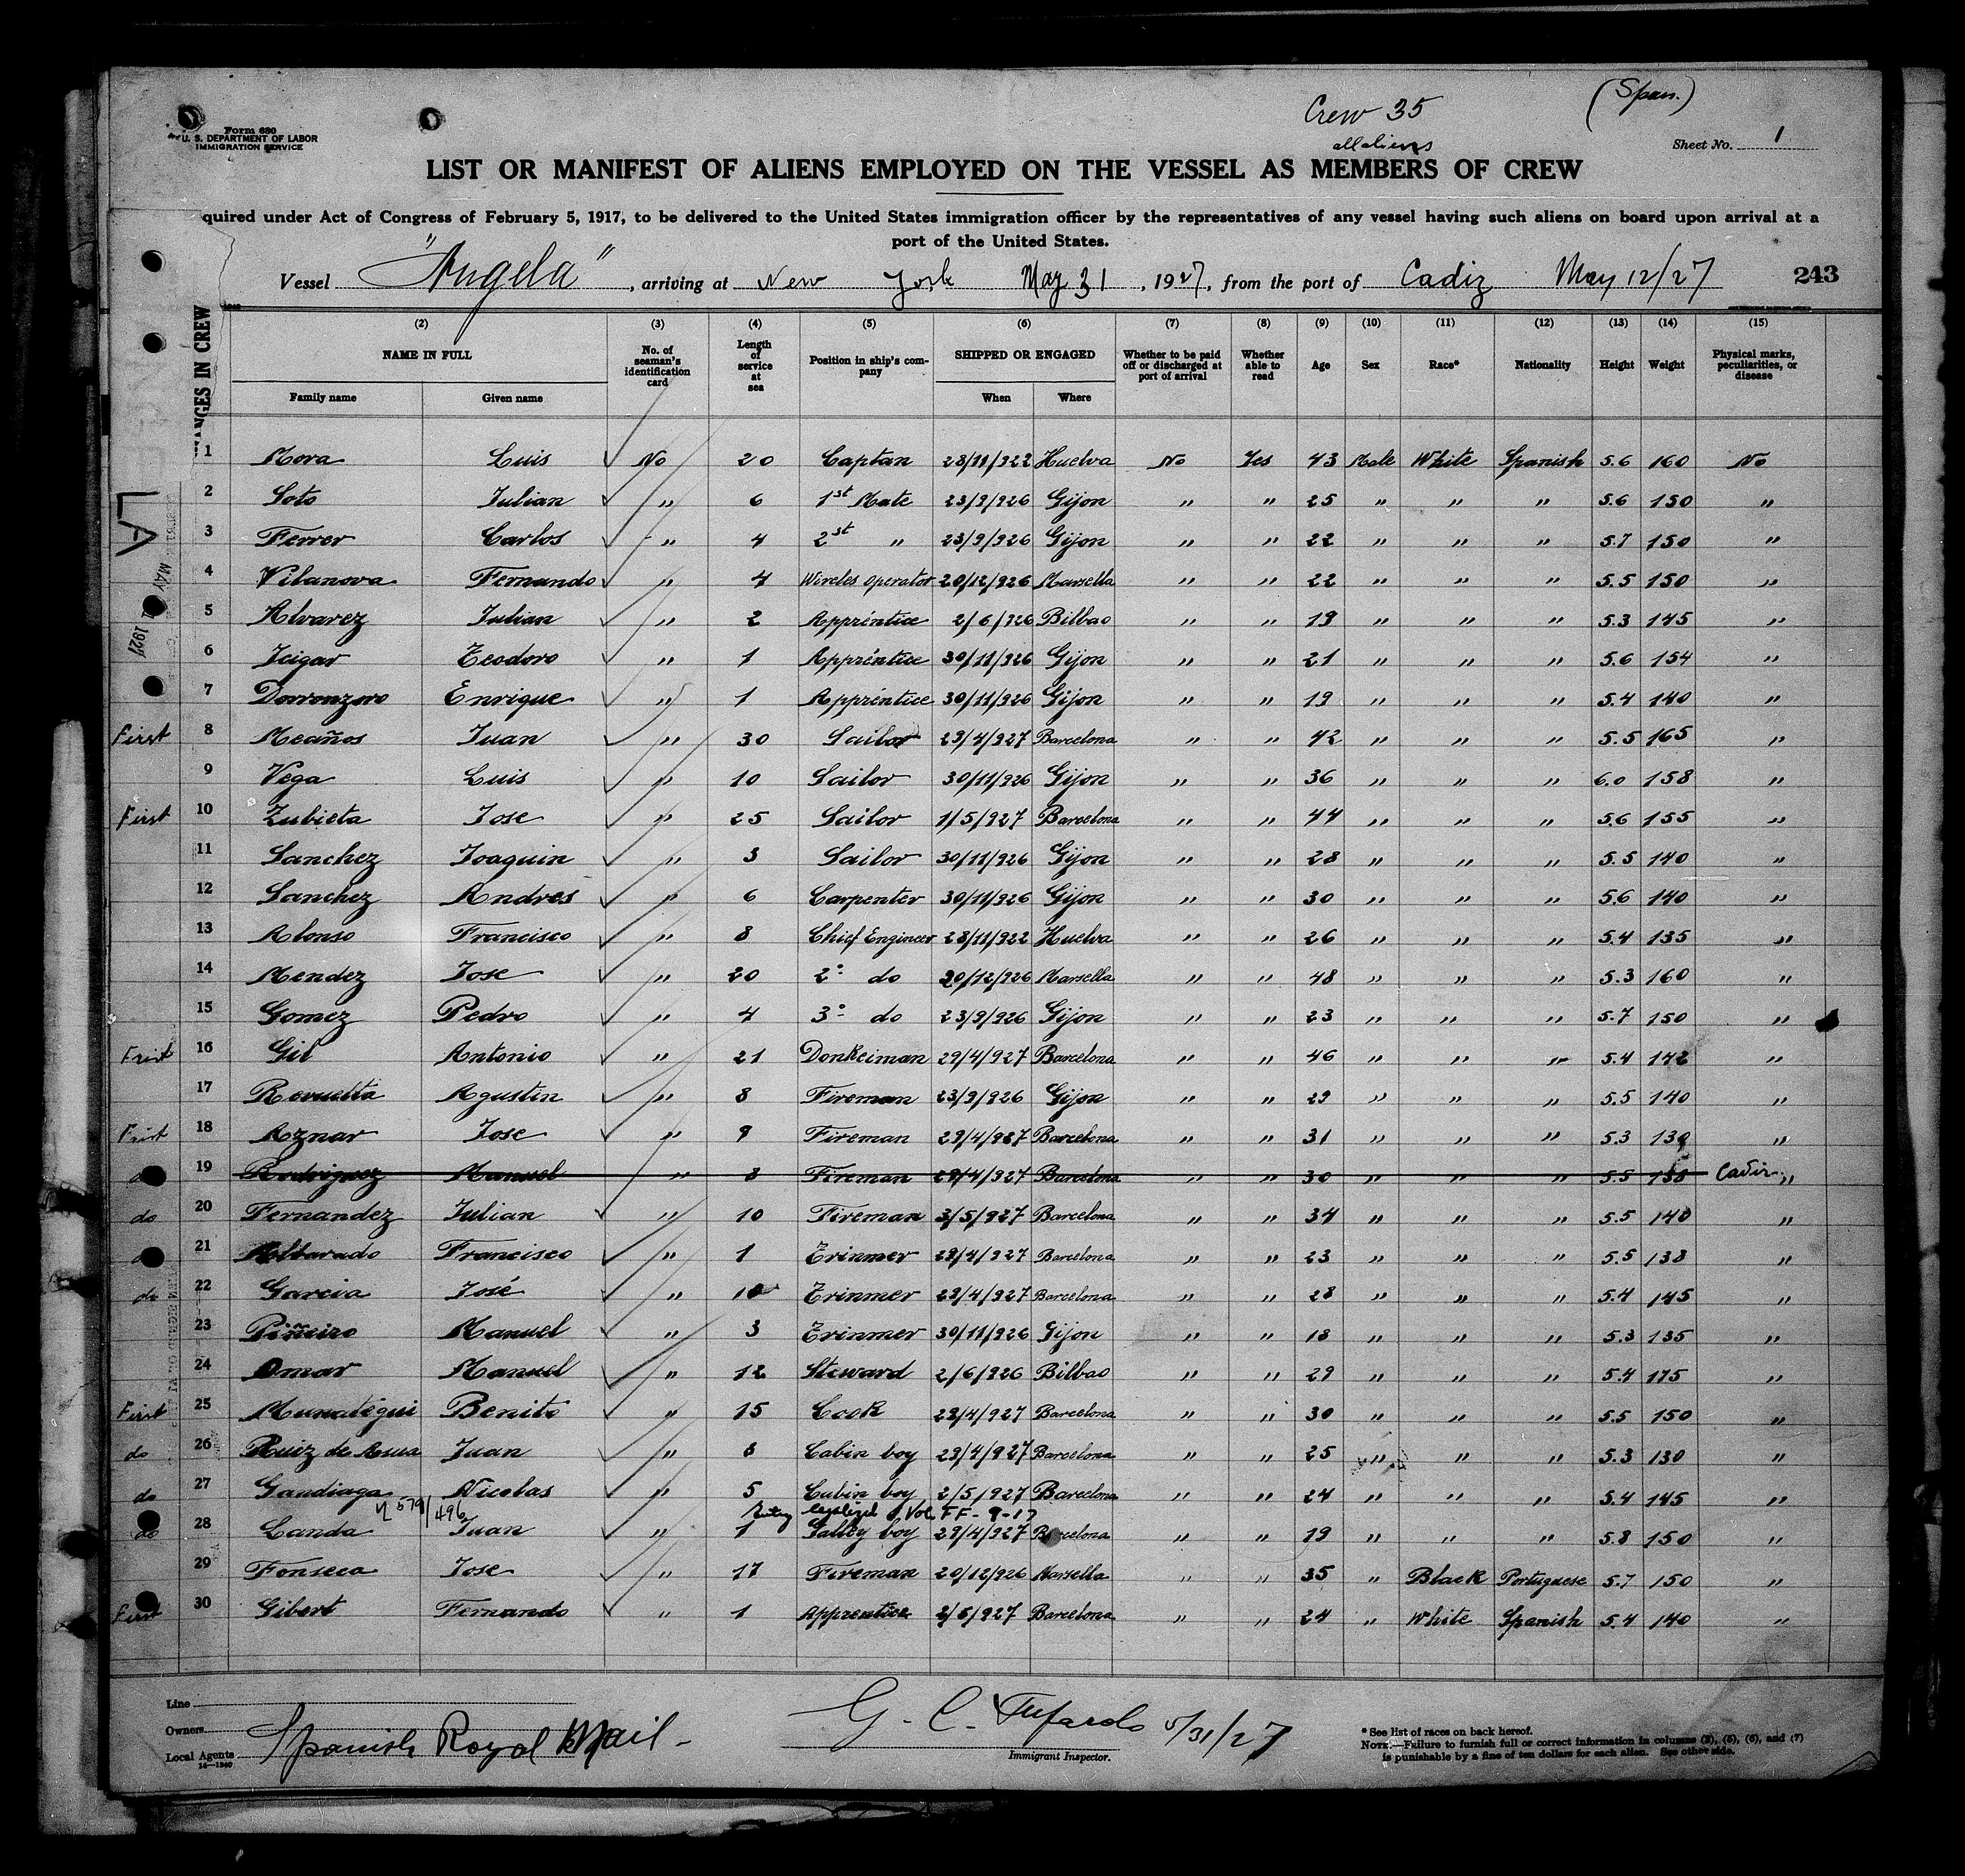 Crew 35
(Span.)
all aliens
Form 680
U. S. DEPARTMENT OF LABOR
IMMIGRATION SERVICE
Sheet No. 1
LIST OR MANIFEST OF ALIENS EMPLOYED ON THE VESSEL AS MEMBERS OF CREW
quired under Act of Congress of February 5, 1917, to be delivered to the United States immigration officer by the representatives of any vessel having such aliens on board upon arrival at a
port of the United States.
Vessel "Angela", arriving at New York May 31, 1927, from the port of Cadiz May 12/27 243
ANGES IN CREW
(2) (3) (4) (5) (6) (7) (8) (9) (10) (11) (12) (13) (14) (15)
NAME IN FULL No. of seaman's identification card Length of service at sea Position in ship's company SHIPPED OR ENGAGED Whether to be paid off or discharged at port of arrival Whether able to read Age Sex Race* Nationality Height Weight Physical marks, peculiarities, or disease
Family name Given name When Where
1 Mora Luis No 20 Captan 28/11/922 Huelva No Yes 43 Male White Spanish 5.6 160 No
2 Soto Julian " 6 1st Mate 23/9/926 Gijon " " 25 " " " 5.6 150 "
3 Ferrer Carlos " 4 2st " 23/9/926 Gijon " " 22 " " " 5.7 150 "
4 Vilanova Fernando " 4 Wireles operator 20/12/926 Marsella " " 22 " " " 5.5 150 "
5 Alvarez Julian " 2 Apprentice 2/6/926 Bilbao " " 19 " " " 5.3 145 "
6 Icigar Teodoro " 1 Apprentice 30/11/926 Gijon " " 21 " " " 5.6 154 "
7 Dorronzoro Enrique " 1 Apprentice 30/11/926 Gijon " " 19 " " " 5.4 140 "
First 8 Meaños Juan " 30 Sailor 29/4/927 Barcelona " " 42 " " " 5.5 165 "
9 Vega Luis " 10 Sailor 30/11/926 Gijon " " 36 " " " 6.0 158 "
First 10 Zubieta Jose " 25 Sailor 1/5/927 Barcelona " " 44 " " " 5.6 155 "
11 Sanchez Joaquin " 3 Sailor 30/11/926 Gijon " " 28 " " " 5.5 140 "
12 Sanchez Andres " 6 Carpenter 30/11/926 Gijon " " 30 " " " 5.6 140 "
13 Alonso Francisco " 8 Chief Engineer 28/11/922 Huelva " " 26 " " " 5.4 135 "
14 Mendez Jose " 20 2º do 20/12/926 Marsella " " 48 " " " 5.3 160 "
15 Gomez Pedro " 4 3º do 23/9/926 Gijon " " 23 " " " 5.7 150 "
Frist 16 Gil Antonio " 21 Donkeiman 29/4/927 Barcelona " " 46 " " " 5.4 142 "
17 Revuelta Agustin " 8 Fireman 23/9/926 Gijon " " 29 " " " 5.5 140 "
Frist 18 Aznar Jose " 9 Fireman 29/4/927 Barcelona " " 31 " " " 5.3 130 "
19 Rodriguez Manuel " 8 Fireman 29/4/927 Barcelona " " 30 " " " 5.5 138 Cadiz "
do 20 Fernandez Julian " 10 Fireman 3/5/927 Barcelona " " 34 " " " 5.5 140 "
21 Albarado Francisco " 1 Trinmer 29/4/927 Barcelona " " 23 " " " 5.5 138 "
do 22 Garcia José " 10 Trinmer 29/4/927 Barcelona " " 28 " " " 5.4 145 "
23 Piñeiro Manuel " 3 Trinmer 30/11/926 Gijon " " 18 " " " 5.3 135 "
24 Omar Manuel " 12 Steward 2/6/926 Bilbao " " 29 " " " 5.4 175 "
First 25 Munategui Benito " 15 Cook 29/4/927 Barcelona " " 30 " " " 5.5 150 "
do 26 Ruiz de Asua Juan " 8 Cabin boy 29/4/927 Barcelona " " 25 " " " 5.3 130 "
do 27 Gandiaga Nicolas " 5 Cabin boy 2/5/927 Barcelona " " 24 " " " 5.4 145 "
579/496 Entry legalized Vol. FF-9-17
do 28 Landa Juan " 1 Galley boy 29/4/927 Barcelona " " 19 " " " 5.8 150 "
29 Fonseca Jose " 17 Fireman 20/12/926 Marsella " " 35 " Black Portuguese 5.7 150 "
First 30 Gibert Fernando " 1 Apprentice 2/5/927 Barcelona " " 24 " White Spanish 5.4 140 "
Line
Owners
Local Agents Spanish Royal Mail -
14—1940
G. C. Tufarolo 5/31/27
Immigrant Inspector.
* See list of races on back hereof.
NOTE.—Failure to furnish full or correct information in columns (2), (5), (6), and (7)
is punishable by a fine of ten dollars for each alien. See other side.
LA
MAY 1927